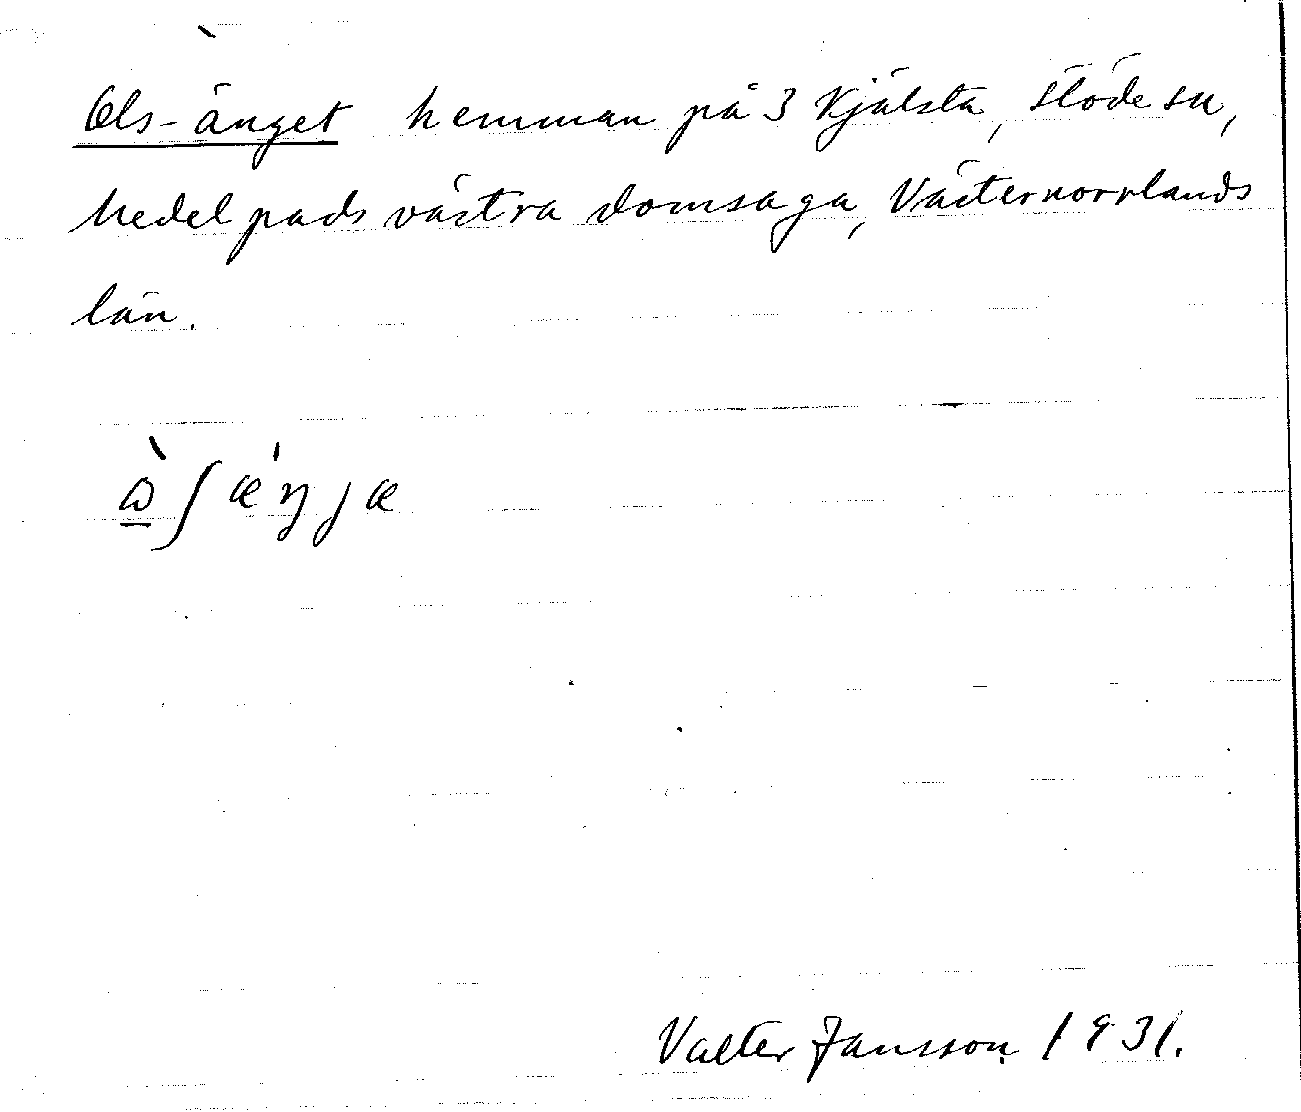 Ols-änget hemman på 3 Kjälsta, Stöde sn,
Medelpads västra domsaga, Västernorrlands
län.
ὼ̲ʃǽŋjæ
Valter Jansson 1931.